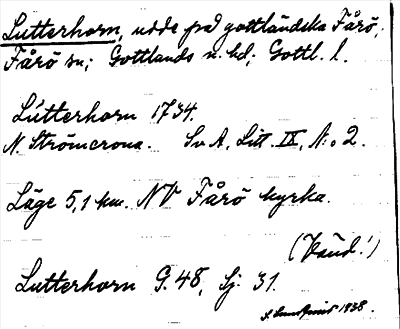 Lutterhorn, udde på gottländska Fårö,
Fårö sn; Gottlands n. hd; Gottl. l.
Lutterhorn 1734.
N. Strömcrona. Sv A, Litt. IX, N:o 2.
Läge 5,1 km. NV Fårö kyrka.
(Vänd!)
Lutterhorn G. 48, Sj. 31.
1938.